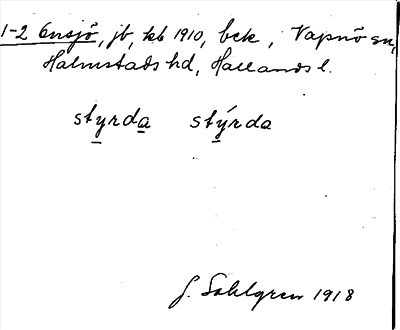 1-2 Ensjö, jb, kb 1910, bek, Vapnö sn,
Halmstads hd, Hallands l.
styrda stýrda
J. Sahlgren 1918